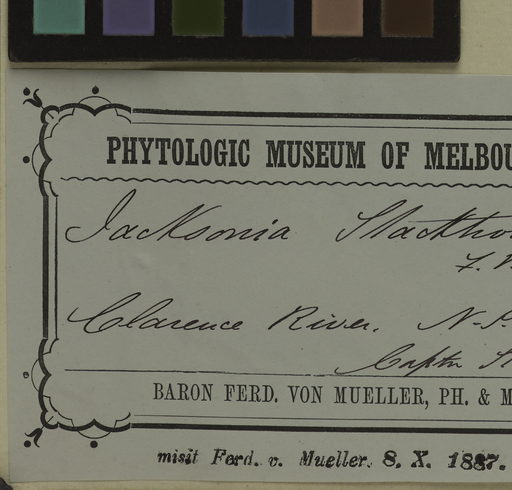 PHYTOLOGIC MUSEUM OF MELBOU
Jacksonia Stackho
F.
Clarence River. N.S.
Captn St
BARON FERD. VON MUELLER, PH. & M
misit Ferd. v. Mueller. 8. X. 1887.